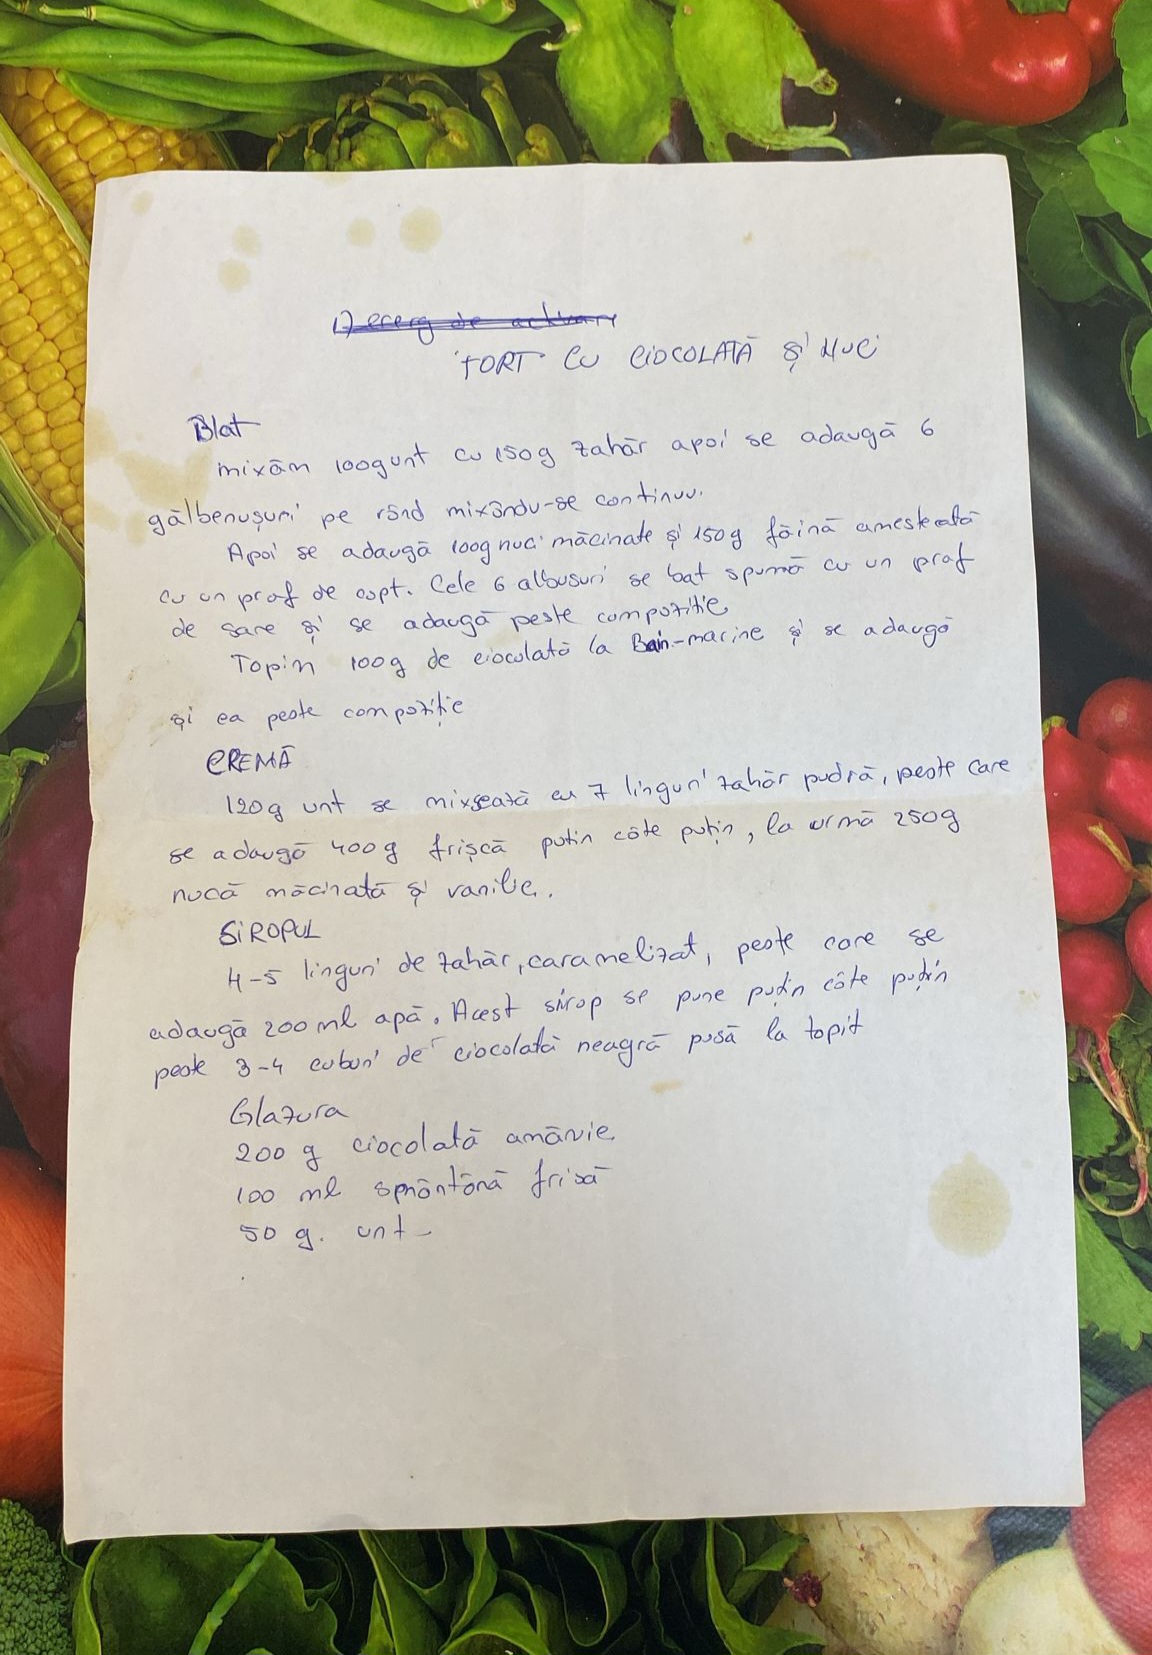 TORT CU CIOCOLATĂ ȘI NUCI
Blat
mixăm 100g unt cu 150g zahăr apoi se adaugă 6
gălbenușuri pe rând mixându-se continuu.
Apoi se adaugă 100g nuci măcinate și 150g făină amestecată
cu un praf de copt. Cele 6 albușuri se bat spumă cu un praf
de sare și se adaugă peste compoziție
Topim 100g de ciocolată la Bain-marine și se adaugă
și ea peste compoziție
CREMĂ
120g unt se mixsează cu 7 linguri zahăr pudră, peste care
se adaugă 400g frișcă putin câte puțin, la urmă 250g
nucă măcinată și vanilie.
SIROPUL
4-5 linguri de zahăr, caramelizat, peste care se
adaugă 200 ml apă. Acest sirop se pune puțin câte puțin
peste 3-4 cuburi de ciocolată neagră pusă la topit
Glazura
200 g ciocolată amăruie
100 ml smântână
50 g. unt